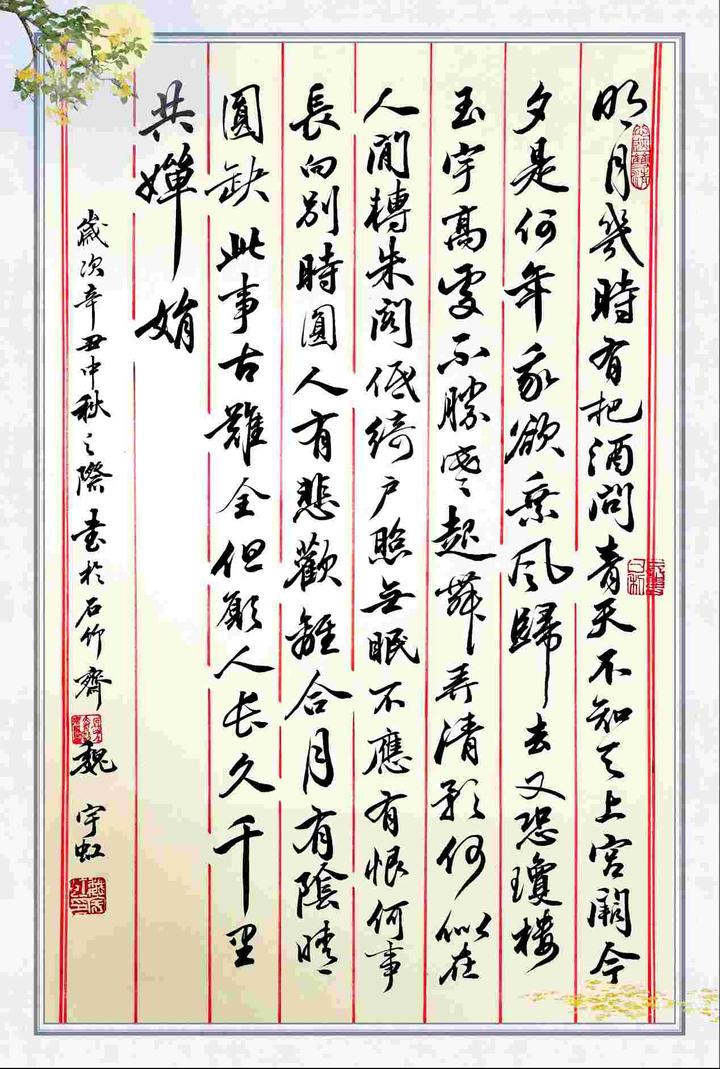 明月幾時有把酒問青天不知天上宮闕今
夕是何年我欲乘風歸去又恐瓊樓
玉宇高處不勝寒起舞弄清影何似在
人間轉朱閣低綺户照無眠不應有恨何事
長向別時圓人有悲歡離合月有陰晴
圓缺此事古難全但願人长久千里
共嬋娟
歲次辛丑中秋之際書於石竹齋
魏宇虹